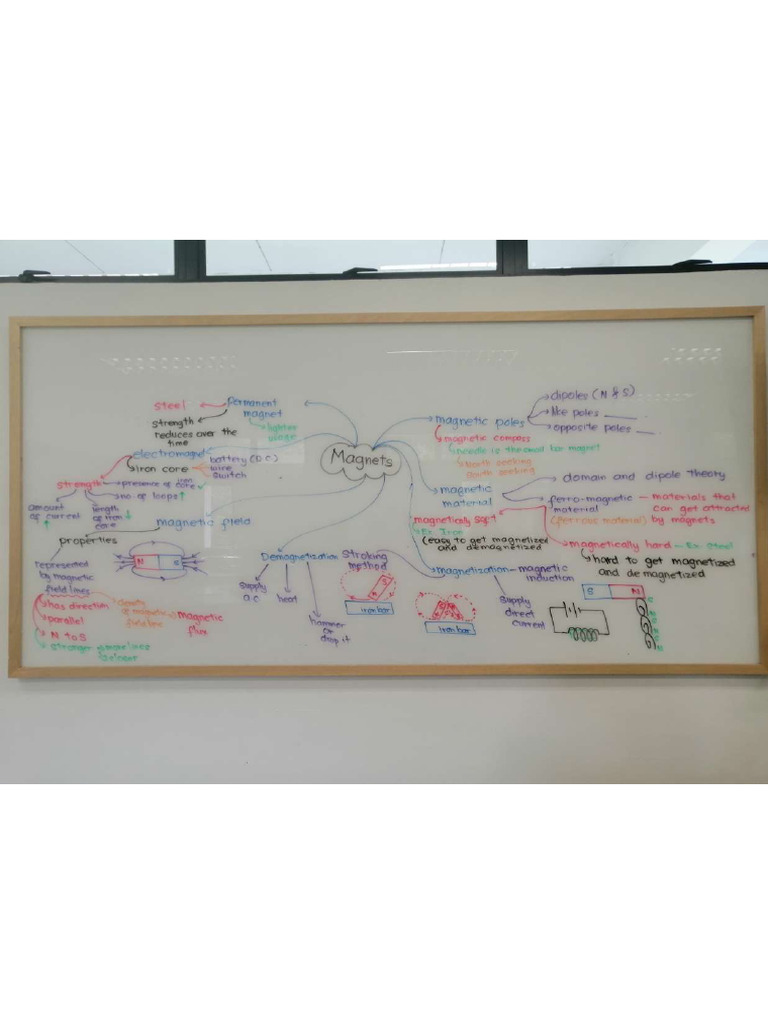 Magnets
Permanent
magnet
steel
strength
reduces over the
time
lighter
usage
electromagnet
iron core
battery (D.C.)
wire
switch
strength
presence of iron core ↑
no of loops ↑
amount
of current
↑
length
of iron
core
↓
magnetic field
properties
represented
by magnetic
field lines
N S
has direction
parallel
N to S
density
of magnetic
field line
magnetic
flux
Demagnetization
supply
a.c
heat
hammer
or
drop it
Stroking
method
iron bar
iron bar
magnetization - magnetic
induction
supply
direct
current
S N
magnetic poles
dipoles (N & S)
like poles
opposite poles
magnetic compass
needle is the small bar magnet
north seeking
south seeking
magnetic
material
domain and dipole theory
ferro-magnetic - materials that
material can get attracted
(ferrous material) by magnets
magnetically soft
Ex Iron
(easy to get magnetized
and demagnetized
magnetically hard - Ex Steel
hard to get magnetized
and demagnetized